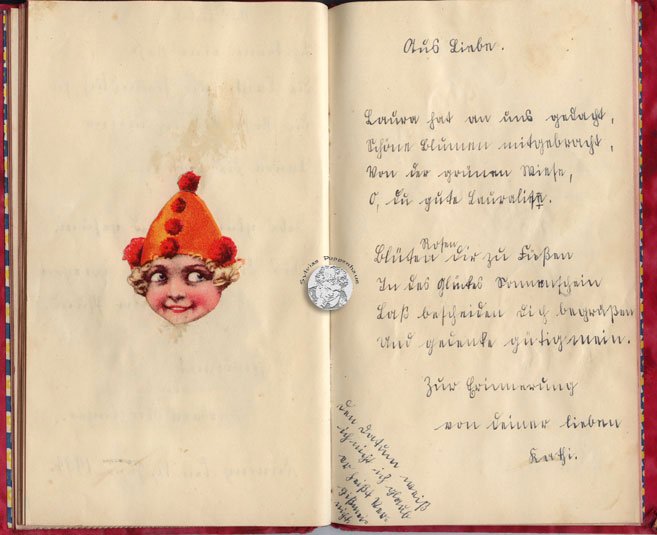 Aus Liebe.
Laura hat an uns gedacht,
Schöne Blumen mitgebracht,
Von der grünen Wiese,
O, du gute Lauraliese.
Rosen
Blüten dir zu Füßen
In des Glücks Sonnenschein
Laß bescheiden dich begrüßen
Und gedenke gütig mein.
Zur Erinnerung
von deiner lieben
Kathi.
den Datum weiß
ich nicht ich glaub
er heißt Ver-
gißmein-
nicht
Puppenhaus